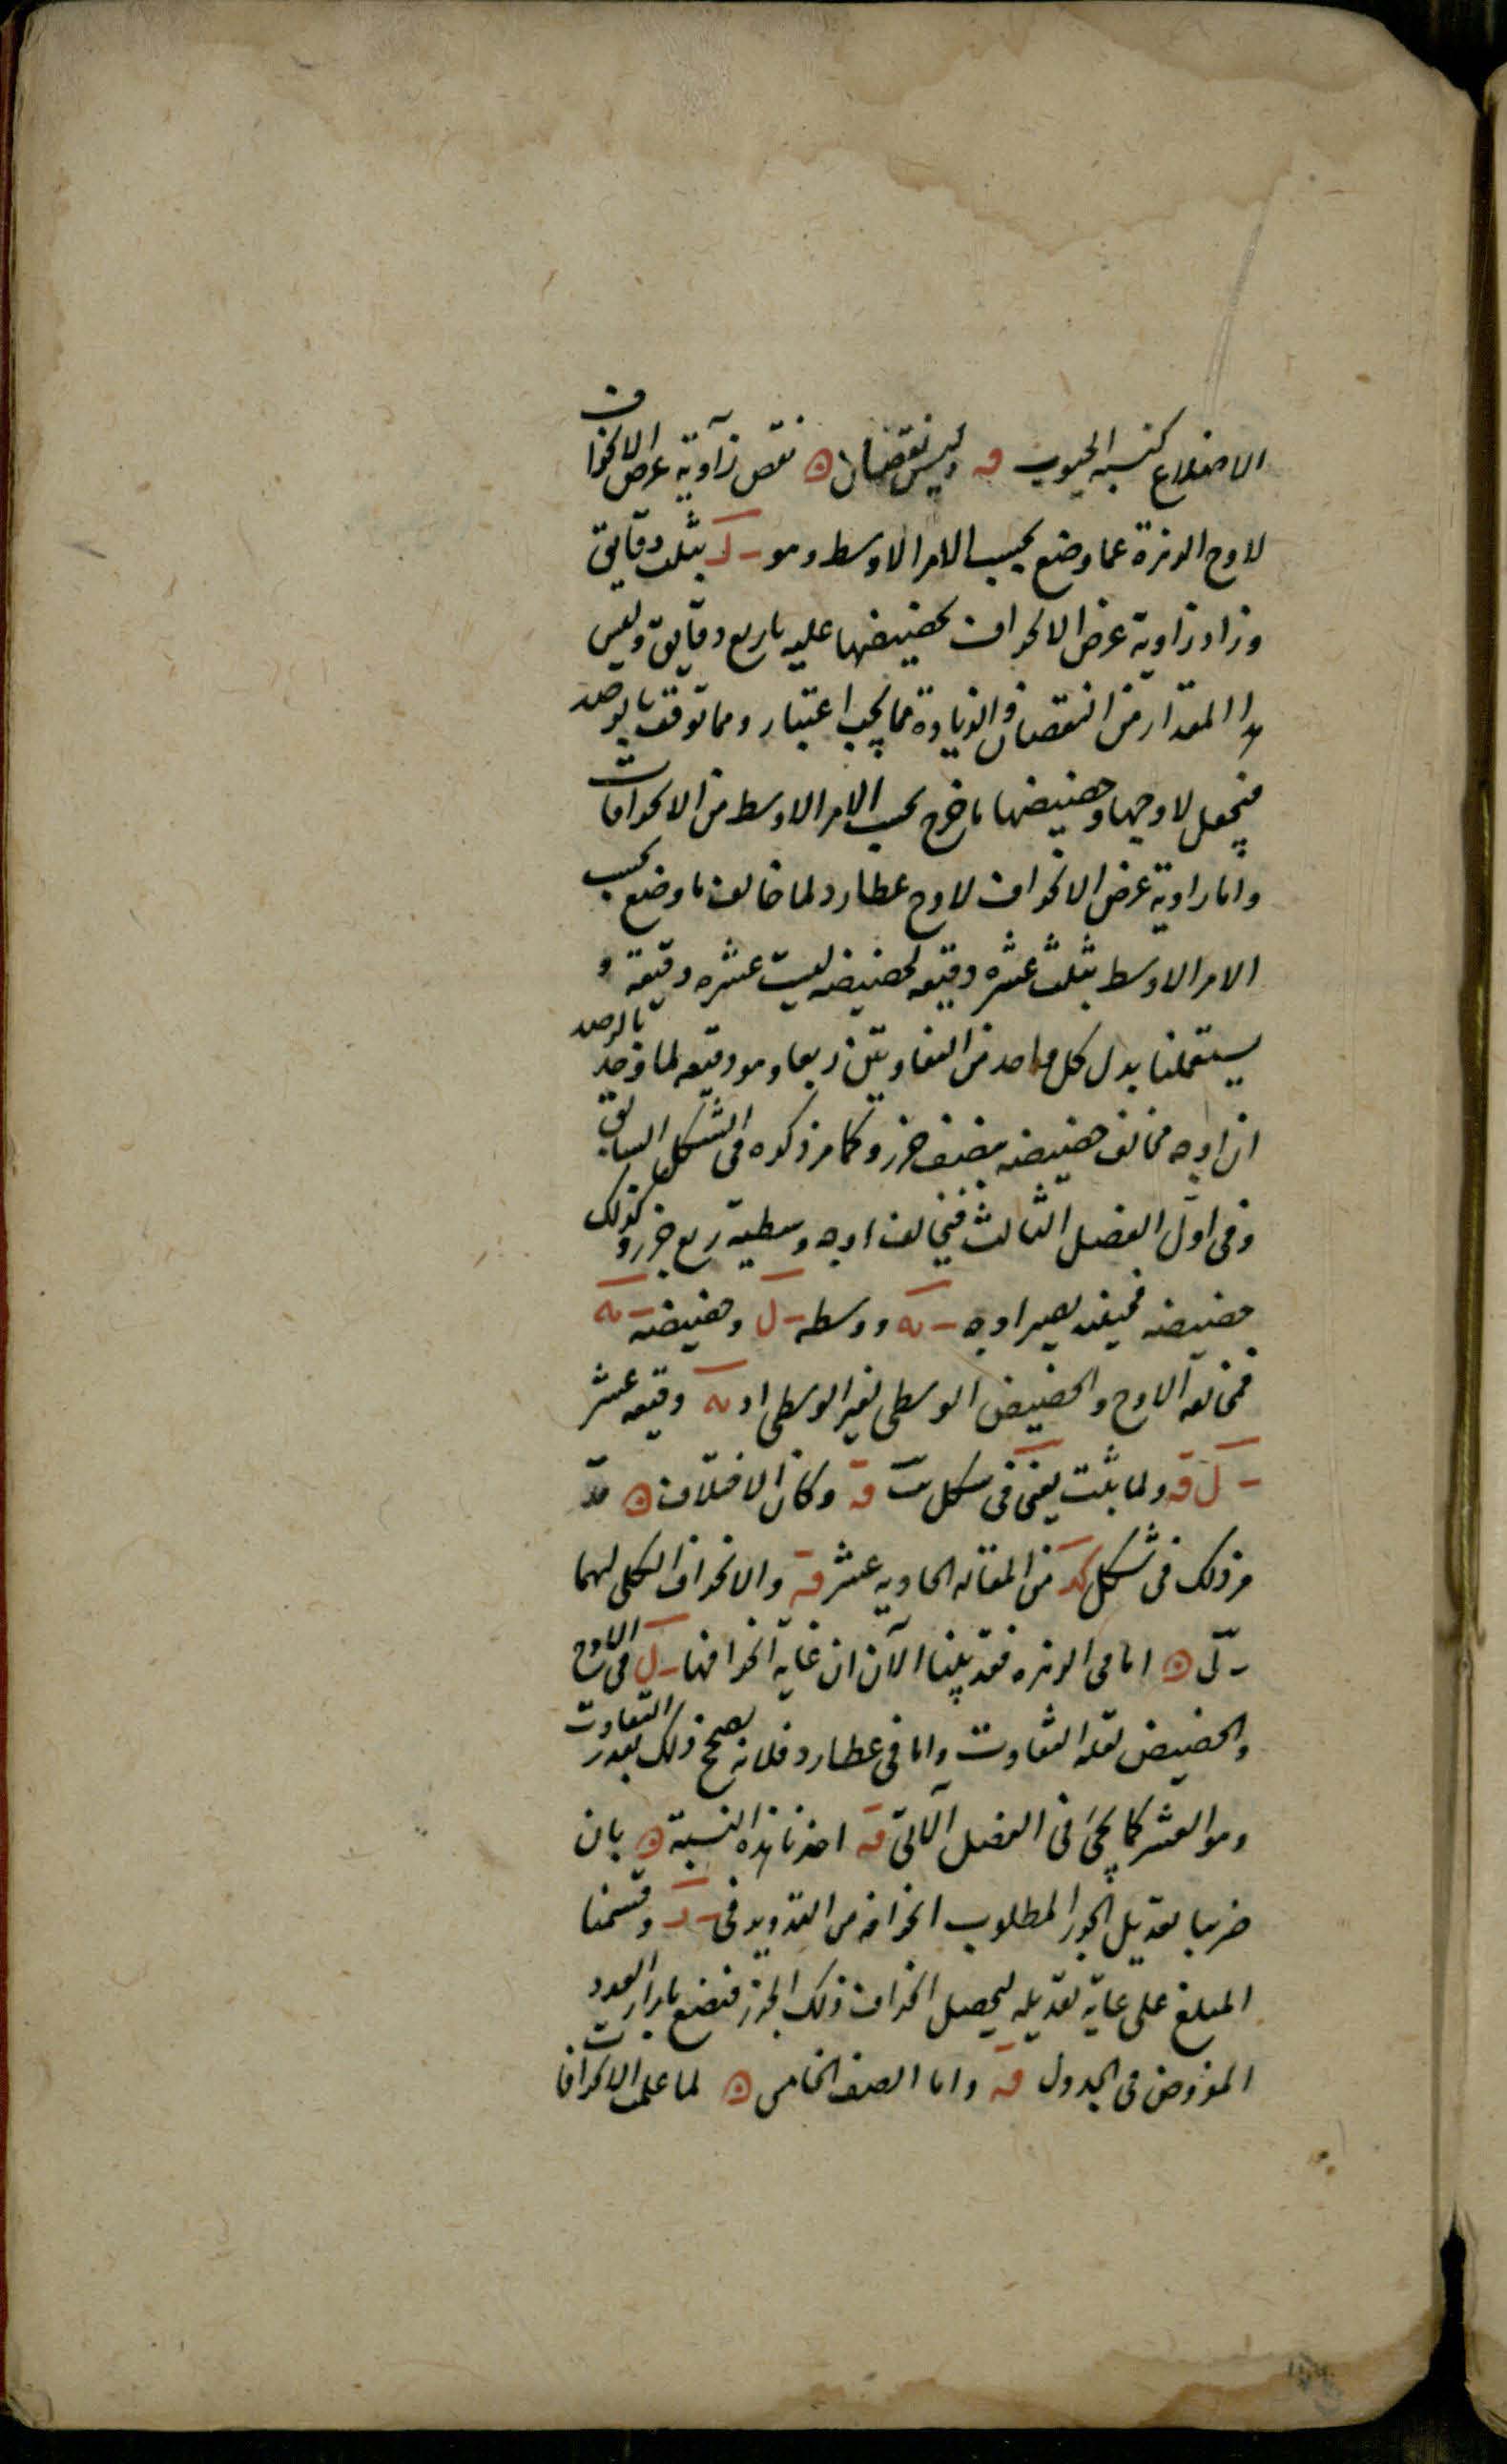 الاضلاع كنسبة الجيوب قه وليس نقصان ۞ نقص زاوية عرض الانحراف
لاوج الزهرة عما وضع بحسب الامر الاوسط وهو ـ ل بثلث دقايق
وزاد زاوية عرض الانحراف لحضيضها عليه باربع دقايق وليس
هذا المقدار من النقصان والزيادة مما يجب اعتبار ومما توقف بالرصد
فنجعل لاوجها وحضيضها ما خرج بحسب الامر الاوسط من الانحرافات
واما زاوية عرض الانحراف لاوج عطارد لما خالف ما وضع بحسب
الامر الاوسط بثلث عشرة دقيقه لحضيضه لست عشره دقيقة و
يستعملنا بدل كل واحد من التفاوتين ربعا وهو دقيقه لما وجد بالرصد
ان اوجه مخالف حضيضه بنصف جزء كما مر ذكره في الشكل السابق
وفي اول الفصل الثالث فيخالف اوجه وسطيه ربع جزء وكذلك
حضيضه فحينئذ يصير اوجه ـ يه ووسطه ـ ل وحضيضه ـ مه
فمخالفه الاوج والحضيض الوسطى لغير الوسطى اد يه دقيقه عشر
ـ ل قه ولما ثبت يعنى فى شكل قه وكان الاختلاف ۞ قد
مر ذلك فى شكل كد من المقاله الحاديه عشر قه والانحراف الكلى لهما
ـ ل ۞ اما فى الزهره فقد بينا الآن ان غاية انحرافها ـ ل فى الاوج
والحضيض لقله التفاوت واما فى عطارد فلانه يصح ذلك بقدر التفاوت
وهو العشر كما يجئ فى الفصل الآتى قه اخذنا هذه النسبة ۞ بان
ضربنا تعديل الجزء المطلوب انحرافه من التدوير فى ـ ل وقسمنا
المبلغ على غاية تعديله ليحصل انحراف ذلك الجزء فنضع بازاء العدد
المفروض فى الجدول قه واما الصف الخامس ۞ لما علمت الانحرافات